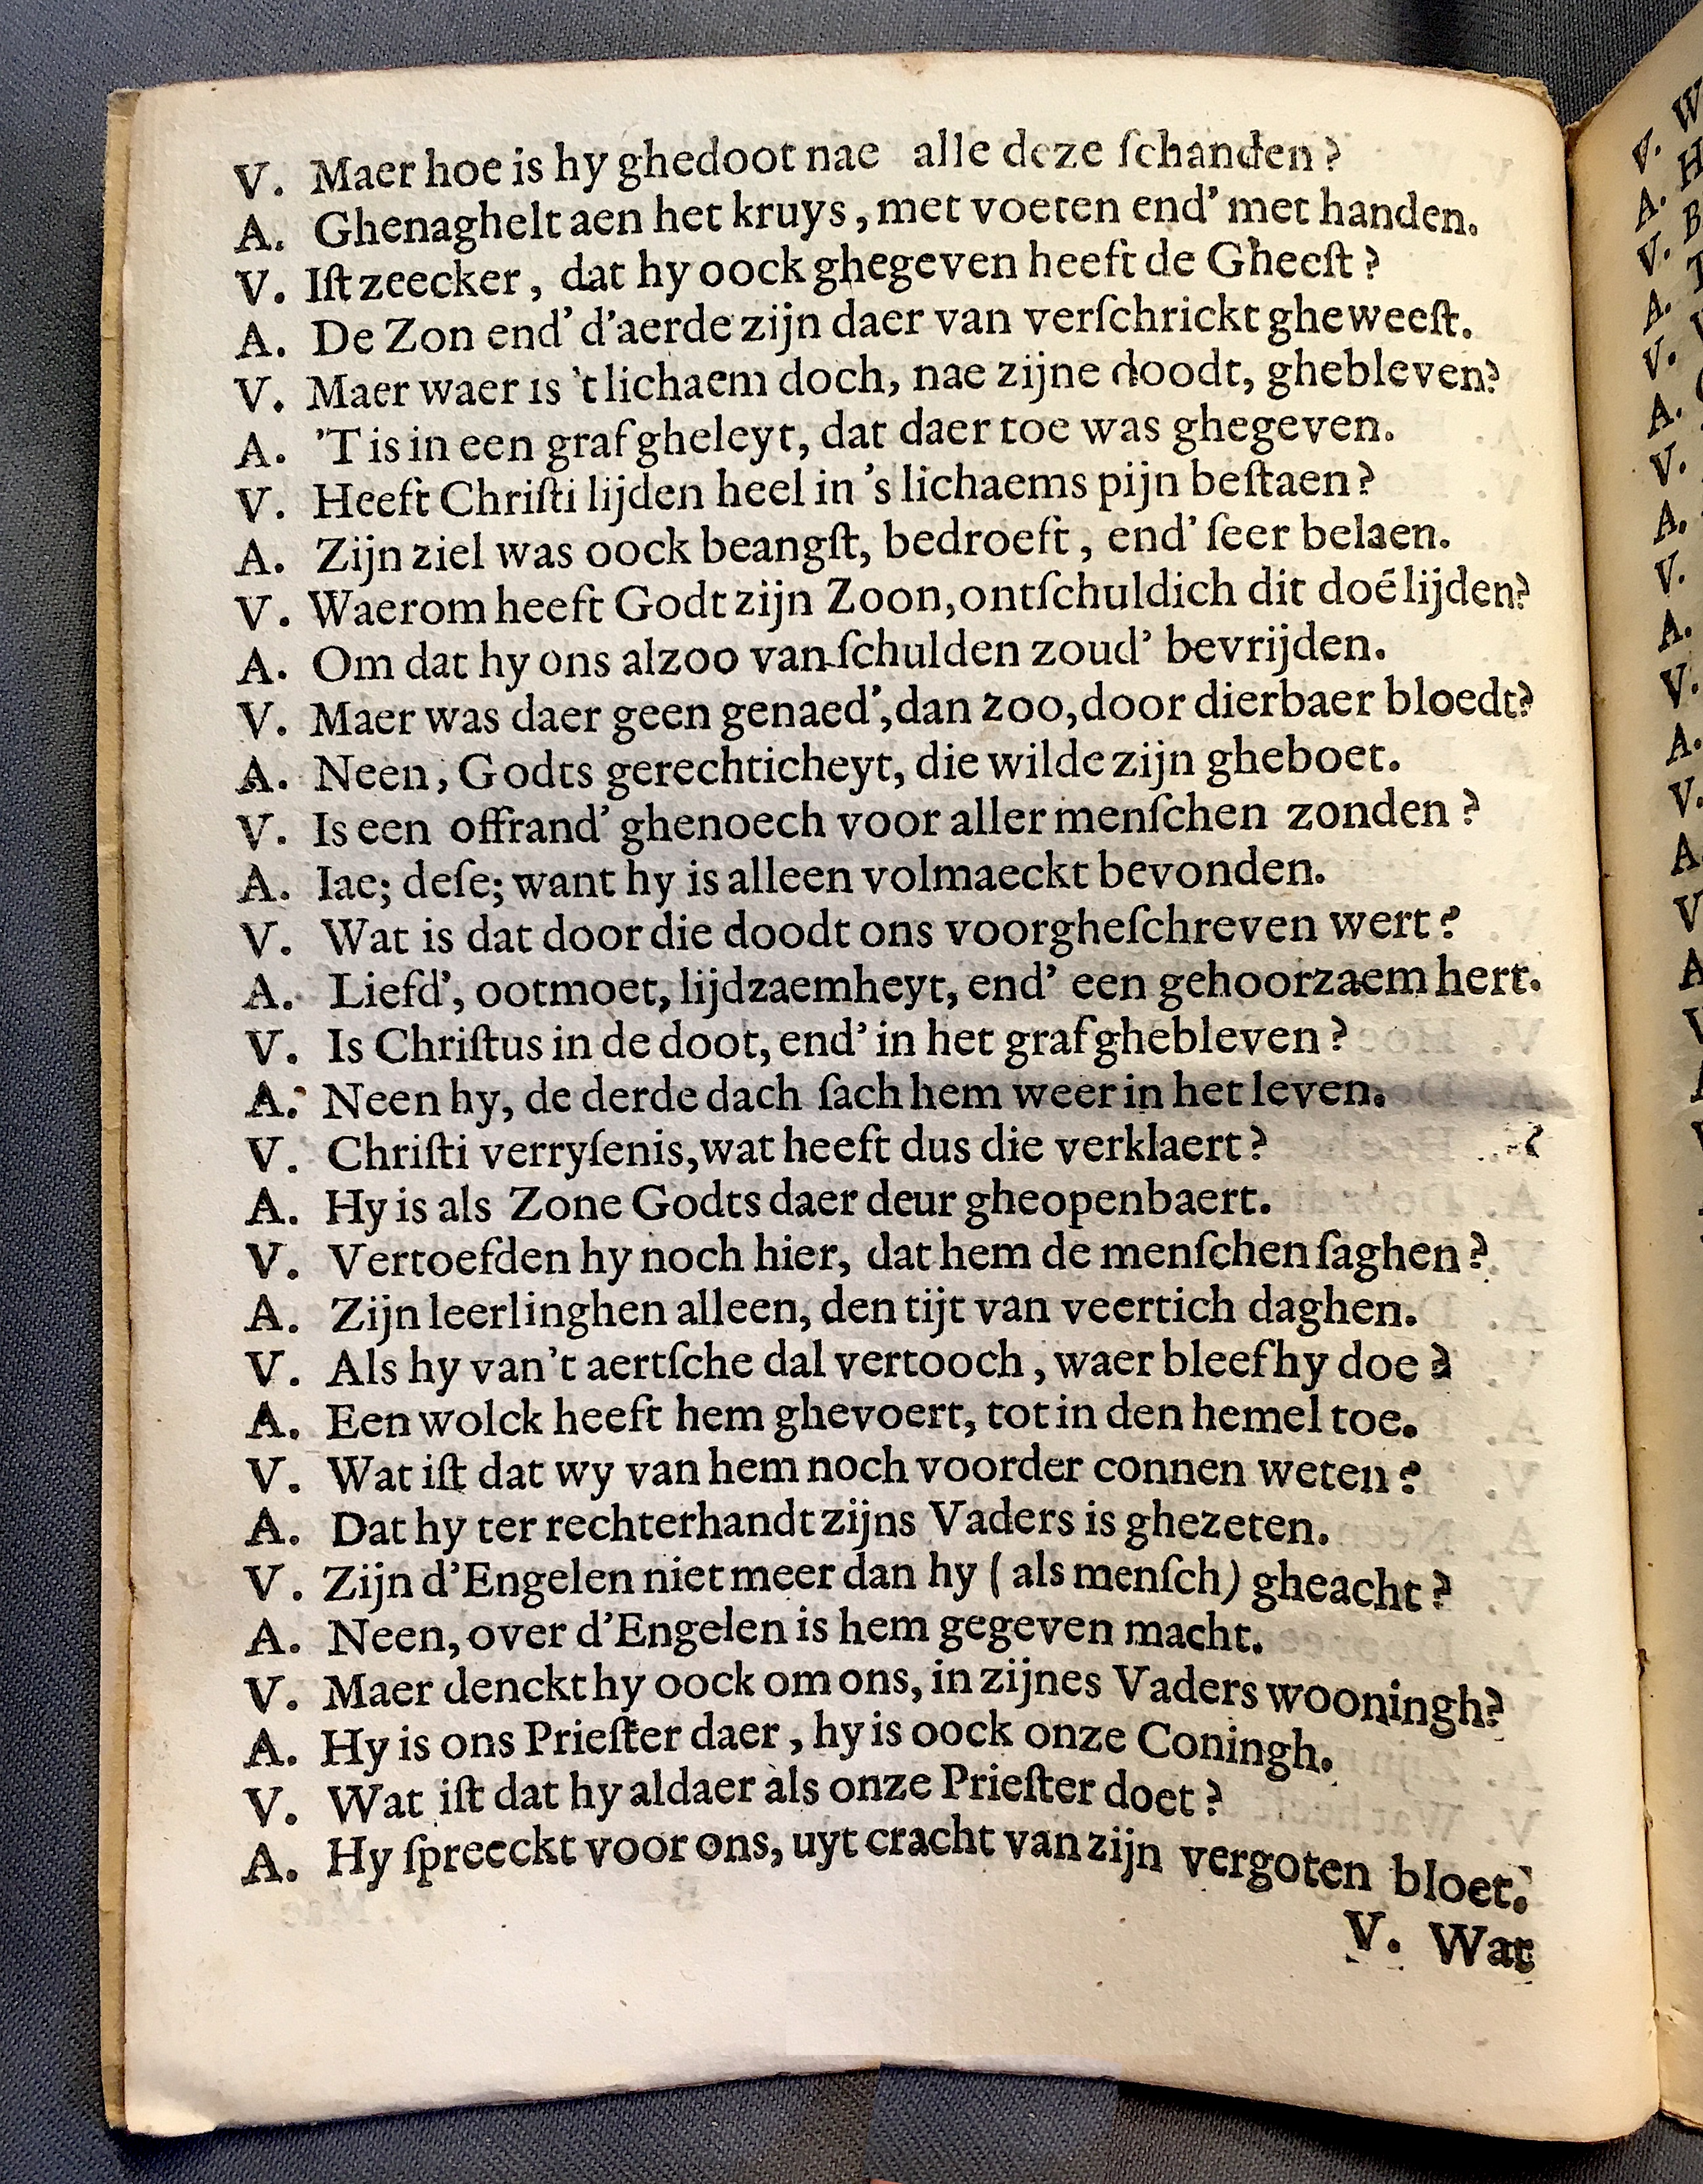 V. Maer hoe is hy ghedoot nae alle deze ſchanden?
A. Ghenaghelt aen het kruys, met voeten end' met handen.
V. Iſt zeecker, dat hy oock ghegeven heeft de Gheeſt?
A. De Zon end' d'aerde zijn daer van verſchrickt gheweeſt.
V. Maer waer is 't lichaem doch, nae zijne doodt, ghebleven?
A. 'T is in een graf gheleyt, dat daer toe was ghegeven.
V. Heeft Chriſti lijden heel in 's lichaems pijn beſtaen?
A. Zijn ziel was oock beangſt, bedroeft, end' ſeer belaen.
V. Waerom heeft Godt zijn Zoon, ontſchuldich dit doē lijden?
A. Om dat hy ons alzoo van ſchulden zoud' bevrijden.
V. Maer was daer geen genaed', dan zoo, door dierbaer bloedt?
A. Neen, Godts gerechticheyt, die wilde zijn gheboet.
V. Is een offrand' ghenoech voor aller menſchen zonden?
A. Iae; deſe; want hy is alleen volmaeckt bevonden.
V. Wat is dat door die doodt ons voorgheſchreven wert?
A. Liefd', ootmoet, lijdzaemheyt, end' een gehoorzaem hert.
V. Is Chriſtus in de doot, end' in het graf ghebleven?
A. Neen hy, de derde dach ſach hem weer in het leven.
V. Chriſti verryſenis, wat heeft dus die verklaert?
A. Hy is als Zone Godts daer deur gheopenbaert.
V. Vertoefden hy noch hier, dat hem de menſchen ſaghen?
A. Zijn leerlinghen alleen, den tijt van veertich daghen.
V. Als hy van't aertſche dal vertooch, waer bleef hy doe?
A. Een wolck heeft hem ghevoert, tot in den hemel toe.
V. Wat iſt dat wy van hem noch voorder connen weten?
A. Dat hy ter rechterhandt zijns Vaders is ghezeten.
V. Zijn d'Engelen niet meer dan hy (als menſch) gheacht?
A. Neen, over d'Engelen is hem gegeven macht.
V. Maer denckt hy oock om ons, in zijnes Vaders wooningh?
A. Hy is ons Prieſter daer, hy is oock onze Coningh.
V. Wat iſt dat hy aldaer als onze Prieſter doet?
A. Hy ſpreeckt voor ons, uyt cracht van zijn vergoten bloet.
V. Wat